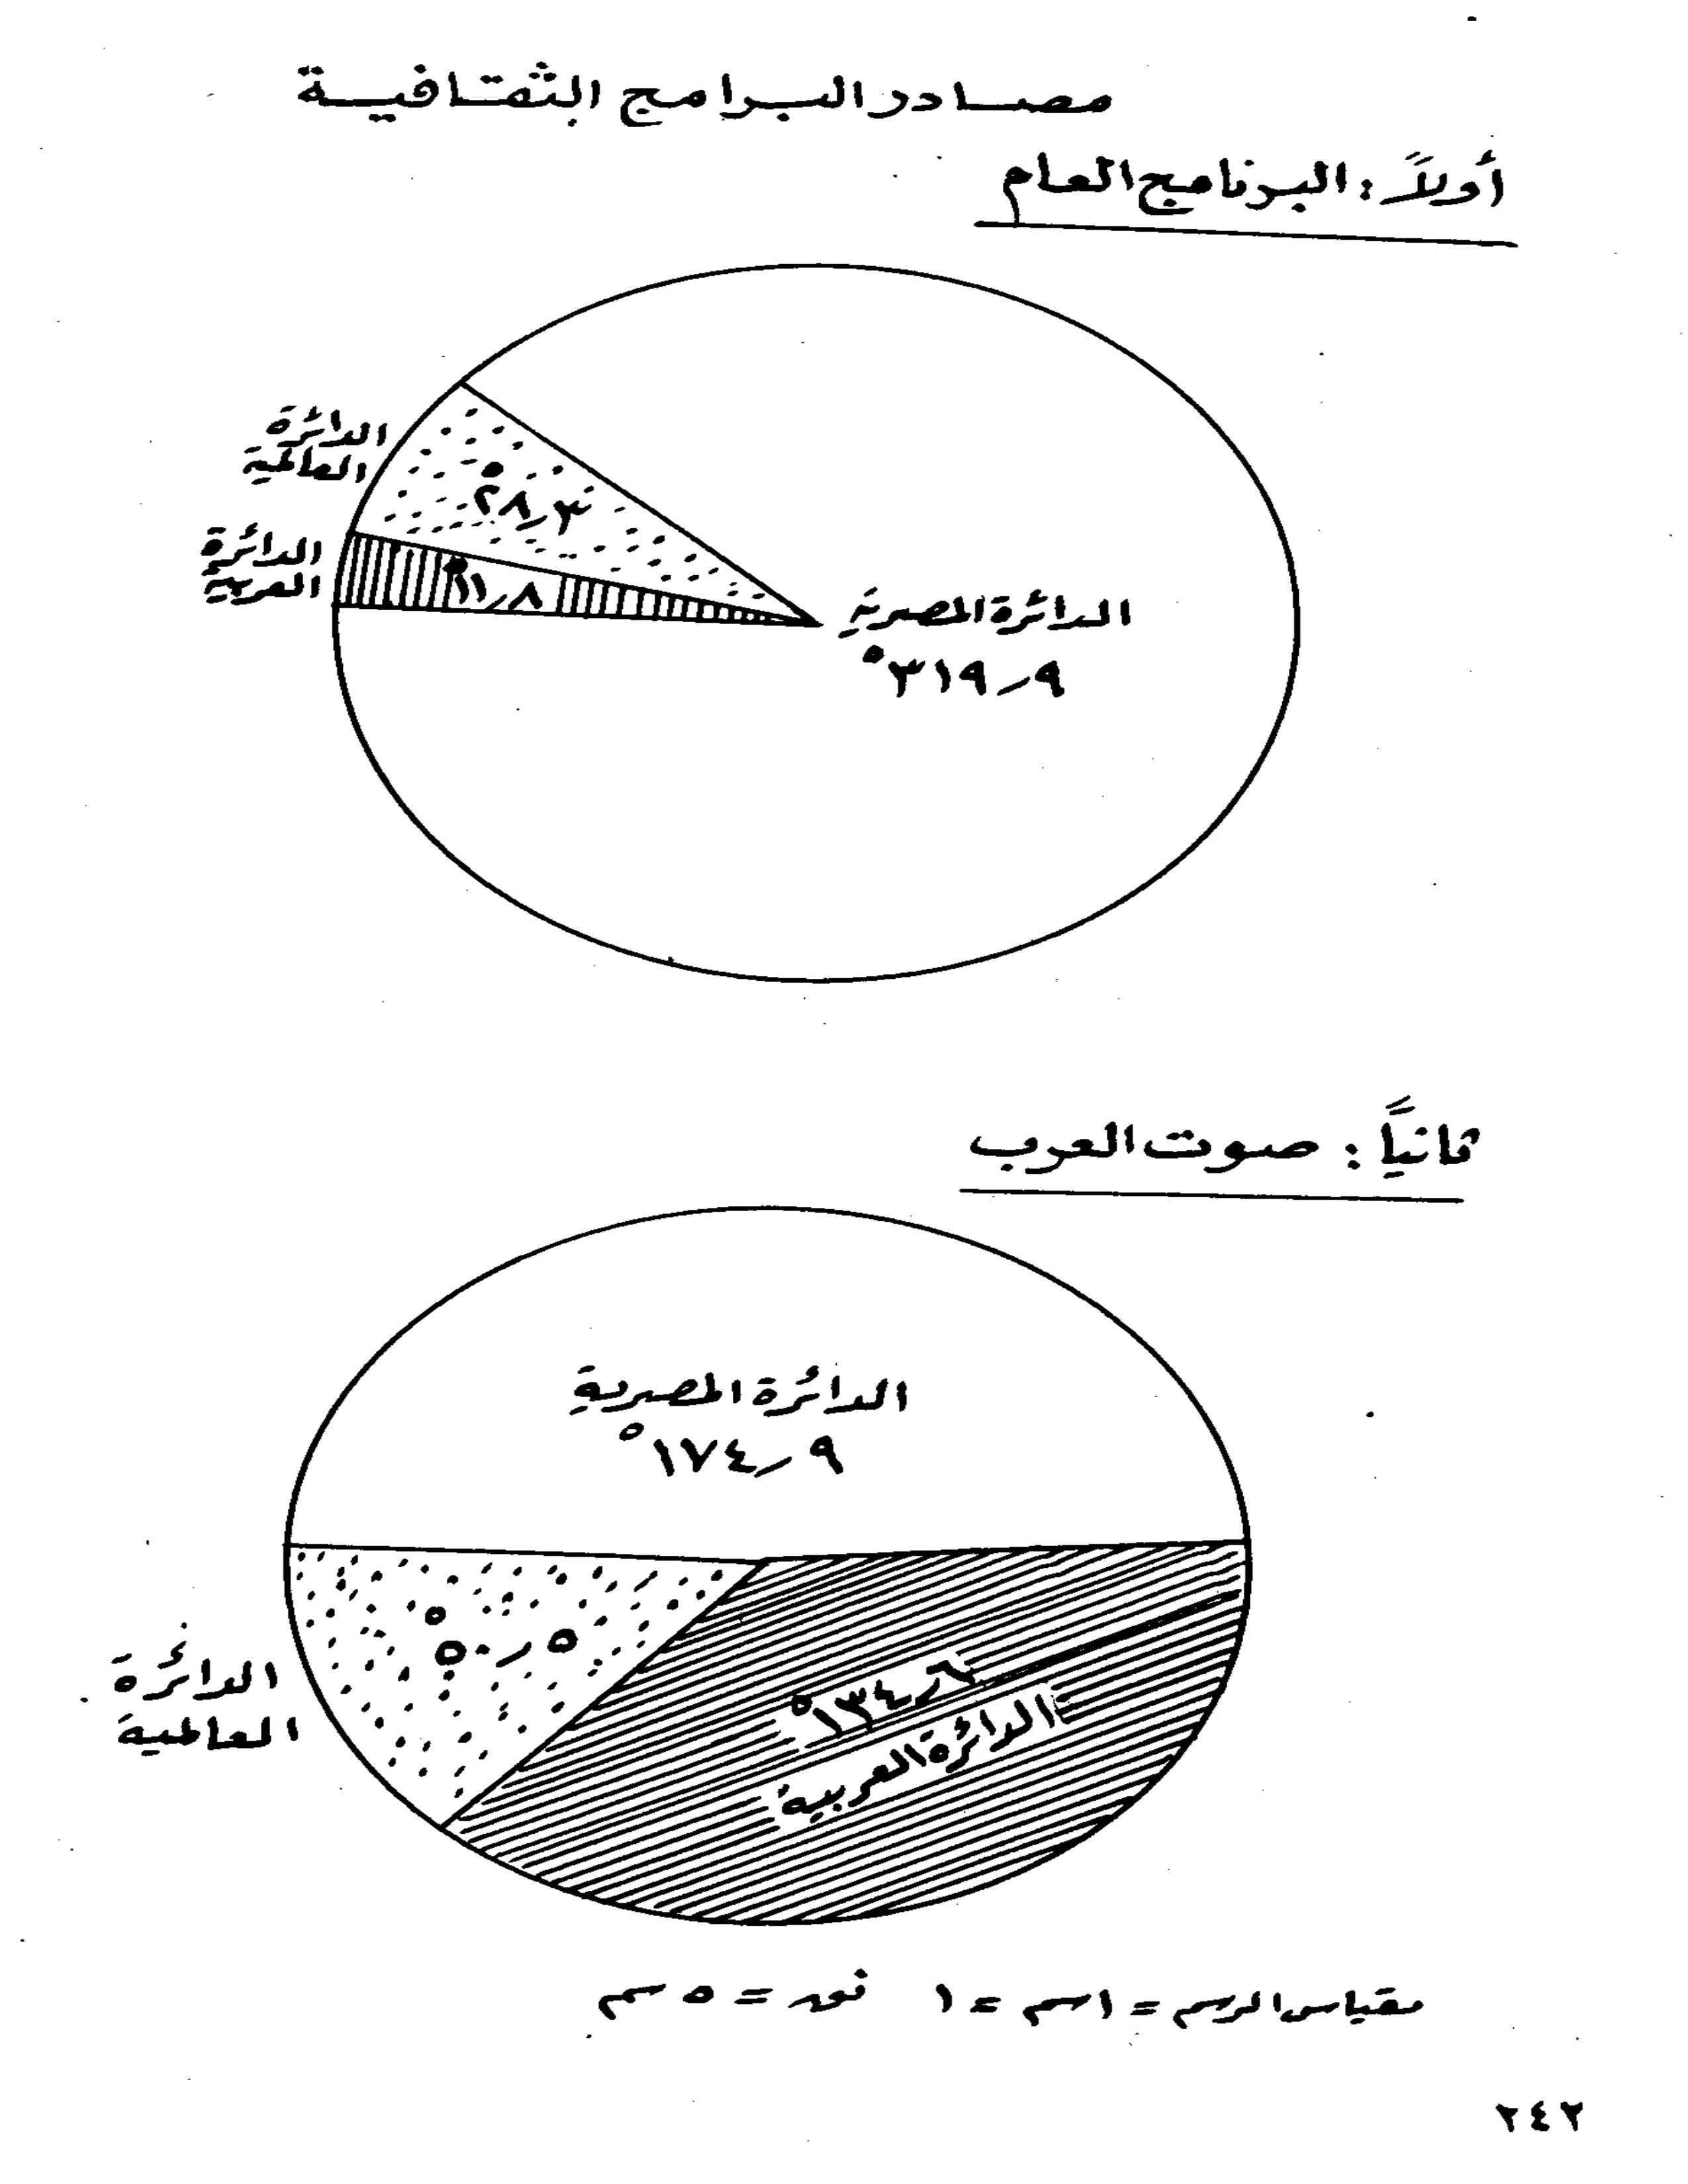 مصادر البرامج الثقافية
أولاً : البرنامج العام
الدائرة
العالمية
٢٨٫٣°
الدائرة
العربية
١١٫٨°
الدائرة المصرية
٣١٩٫٩°
ثانياً : صوت العرب
الدائرة المصرية
١٧٤٫٩°
٥٠٫٥°
الدائرة
العالمية
١٣٤٫٦°
الدائرة العربية
مقياس الرسم = ١سم = ١ نوه = ٥ سم
٢٤٢